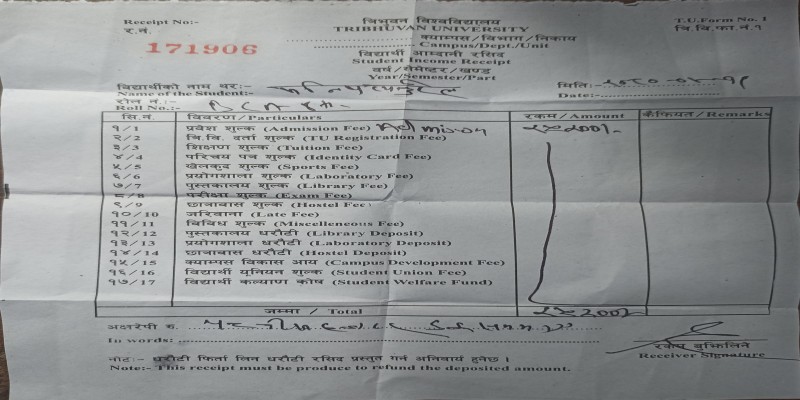 Receipt No:-
र.नं.
171906
त्रिभुवन विश्वविद्यालय
TRIBHUVAN UNIVERSITY
क्याम्पस/विभाग/निकाय
Campus/Dept./Unit
विद्यार्थी आम्दानी रसिद
Student Income Receipt
वर्ष/सेमेष्टर/खण्ड
Year/Semester/Part
T.U.Form No. 1
त्रि.वि.फा.नं.१
विद्यार्थीको नाम थर:-
Name of the Student:-
मिति:-
Date:-
रोल नं.:-
Roll No.:- BCA
सि.नं. विवरण/Particulars रकम/Amount कैफियत/Remarks
१/1 प्रवेश शुल्क (Admission Fee) Admission
२/2 त्रि.वि. दर्ता शुल्क (TU Registration Fee)
३/3 शिक्षण शुल्क (Tuition Fee)
४/4 परिचय पत्र शुल्क (Identity Card Fee)
५/5 खेलकुद शुल्क (Sports Fee)
६/6 प्रयोगशाला शुल्क (Laboratory Fee)
७/7 पुस्तकालय शुल्क (Library Fee)
८/8 परीक्षा शुल्क (Exam Fee)
९/9 छात्रावास शुल्क (Hostel Fee)
१०/10 जरिवाना (Late Fee)
११/11 विविध शुल्क (Miscelleneous Fee)
१२/12 पुस्तकालय धरौटी (Library Deposit)
१३/13 प्रयोगशाला धरौटी (Laboratory Deposit)
१४/14 छात्रावास धरौटी (Hostel Deposit)
१५/15 क्याम्पस विकास आय (Campus Development Fee)
१६/16 विद्यार्थी यूनियन शुल्क (Student Union Fee)
१७/17 विद्यार्थी कल्याण कोष (Student Welfare Fund)
जम्मा / Total
अक्षरेपी रु.
In words:
रकम बुझिलिने
Receiver Signature
नोट:- धरौटी फिर्ता लिन धरौटी रसिद प्रस्तुत गर्न अनिवार्य हुनेछ ।
Note:- This receipt must be produce to refund the deposited amount.